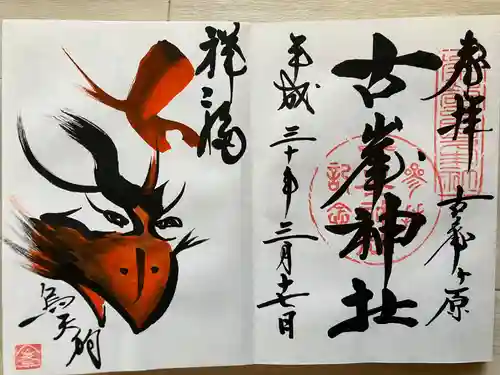 奉拝
古峯ヶ原
古峯神社
平成三十年三月十七日
祥福
烏天狗
参拝記念